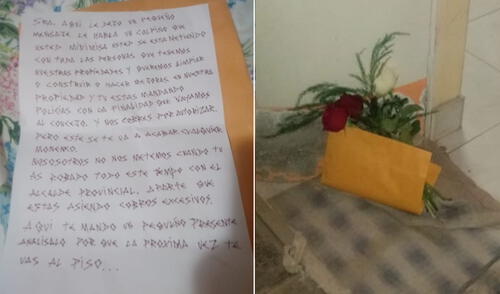 SRA. AQUÍ LE DEJO UN PEQUEÑO
MENSAJE LE HABLA UN COLPINO QUE
USTED MINIMISA USTED SE ESTA METIENDO
CON TODA LAS PERSONAS QUE TENEMOS
NUESTRAS PROPIEDADES Y QUEREMOS LIMPIAR
O CONSTRUIR O HACER MEJORAS EN NUESTRA
PROPIEDAD Y TU ESTAS MANDANDO
POLICIAS CON LA FINALIDAD QUE VAYAMOS
AL CONCEJO, Y NOS COBRES POR AUTORIZAR.
PERO ESTE SE TE VA A ACABAR CUALQUIER
MONENTO.
NOSOSOTROS NO NOS METEMOS CUANDO TU
AS ROBADO TODO ESTE TIEMPO CON EL
ALCALDE PROVINCIAL, APARTE QUE
ESTAS ASIENDO COBROS EXCESIVOS.
AQUÍ TE MANDO UN PEQUEÑO PRESENTE
ANALISALO POR QUE LA PROXIMA VEZ TE
VAS AL PISO...